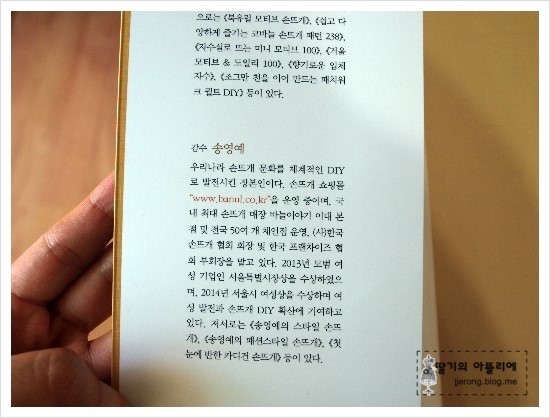 으로는 《북유럽 모티브 손뜨개》, 《쉽고 다
양하게 즐기는 코바늘 손뜨개 패턴 238》,
《자수실로 뜨는 미니 모티브 100》, 《겨울
모티브 & 도일리 100》, 《향기로운 입체
자수》, 《조그만 천을 이어 만드는 패치워
크 퀼트 DIY》 등이 있다.
감수 송영예
우리나라 손뜨개 문화를 체계적인 DIY
로 발전시킨 장본인이다. 손뜨개 쇼핑몰
"www.banul.co.kr"을 운영 중이며, 국
내 최대 손뜨개 매장 바늘이야기 이대 본
점 및 전국 50여 개 체인점 운영, (사)한국
손뜨개 협회 회장 및 한국 프랜차이즈 협
회 부회장을 맡고 있다. 2013년 모범 여
성 기업인 서울특별시장상을 수상하였으
며, 2014년 서울시 여성상을 수상하며 여
성 발전과 손뜨개 DIY 확산에 기여하고
있다. 저서로는 《송영예의 스타일 손뜨
개》, 《송영예의 패션스타일 손뜨개》, 《첫
눈에 반한 카디건 손뜨개》 등이 있다.
딸기의 아뜰리에
jjerong.blog.me